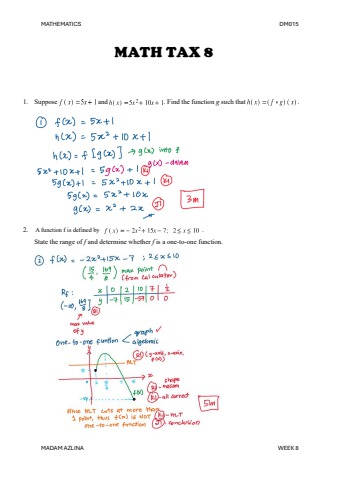 MATHEMATICS DM015
MATH TAX 8
1. Suppose f(x) = 5x + 1 and h(x) = 5x² + 10x + 1. Find the function g such that h(x) = (f ∘ g)(x).
① f(x) = 5x+1
h(x) = 5x² + 10x + 1
h(x) = f[g(x)] → g(x) into f
5x² + 10x + 1 = 5g(x) + 1 K1
5g(x)+1 = 5x² + 10x + 1 K1
5g(x) = 5x² + 10x
g(x) = x² + 2x J1
3m
2. A function f is defined by f(x) = −2x² + 15x − 7; 2 ≤ x ≤ 10.
State the range of f and determine whether f is a one-to-one function.
② f(x) = -2x²+15x-7 ; 2≤x≤10
(15/4, 169/8) max point
(from calculator)
x 0 2 10 7 1/2
Rf:
y -7 15 -57 0 0
(-∞, 169/8]
max value
of y
one-to-one function graph ✓
algebraic
(y-axis, x-axis, f(x))
HLT
y
x
f(x)
shape
K1-all correct
since HLT cuts at more than
1 point, thus f(x) is NOT K1-HLT
one-to-one function J1-conclusion
5m
MADAM AZLINA WEEK 8